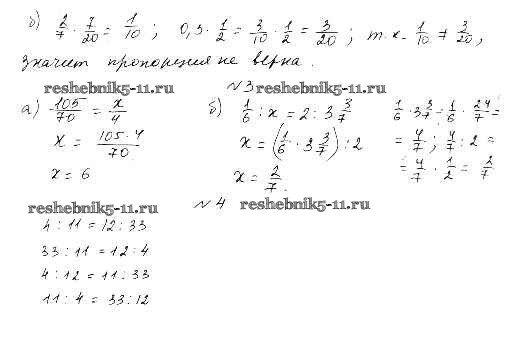 б) 2/7 · 7/20 = 1/10 ; 0,3 · 1/2 = 3/10 · 1/2 = 3/20 ; т.к. 1/10 ≠ 3/20 ,
значит пропорция не верна.
reshebnik5-11.ru №3 reshebnik5-11.ru
а) 105/70 = x/4
x = 105·4/70
x = 6
б) 1/6 : x = 2 : 3 3/7
x = (1/6 · 3 3/7) : 2
x = 2/7.
1/6 · 3 3/7 = 1/6 · 24/7 =
= 4/7 ; 4/7 : 2 =
= 4/7 · 1/2 = 2/7
reshebnik5-11.ru №4 reshebnik5-11.ru
4 : 11 = 12 : 33
33 : 11 = 12 : 4
4 : 12 = 11 : 33
11 : 4 = 33 : 12